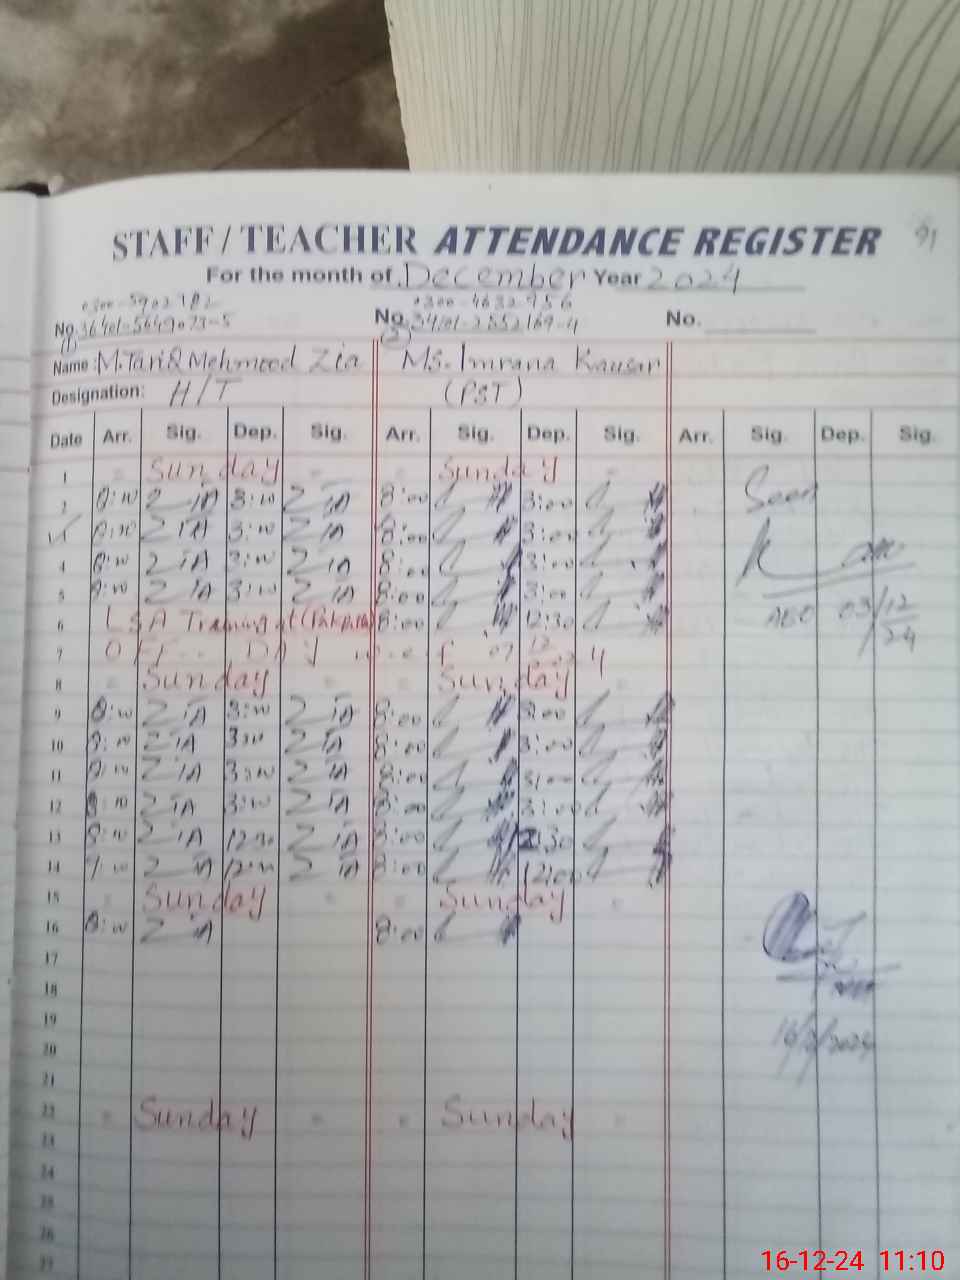 91
STAFF / TEACHER ATTENDANCE REGISTER
For the month of December Year 2024
0300-4632956
No. 36401-5649073-5 No. 34101-2552169-4 No.
(1) (2)
Name: M. Tariq Mehmood Zia Ms. Imrana Kausar
Designation: H/T (PST)
Date Arr. Sig. Dep. Sig. Arr. Sig. Dep. Sig. Arr. Sig. Dep. Sig.
1 Sunday Sunday
2 8:00 ZiA 3:00 ZiA 8:00 3:00 Seen
8:00 ZiA 3:00 ZiA 8:00 3:00
4 8:00 ZiA 3:00 ZiA 8:00 3:00
5 8:00 ZiA 3:00 ZiA 8:00 3:00
6 LSA Training at 8:00 12:30 AEO 03/12/24
7 Off Day w.e.f 07 12
8 Sunday Sunday
9 8:00 ZiA 3:00 ZiA 8:00 3:00
10 8:00 ZiA 3:00 ZiA 8:00 3:00
11 8:00 ZiA 3:00 ZiA 8:00 3:00
12 8:00 ZiA 3:00 ZiA 8:00 3:00
13 8:00 ZiA 12:30 ZiA 8:00 12:30
14 ZiA ZiA 8:00 12:00
15 Sunday Sunday
16 8:00 ZiA 8:00
17
18
19
20
21
22 Sunday Sunday
23
24
25
26
27
16-12-24 11:10